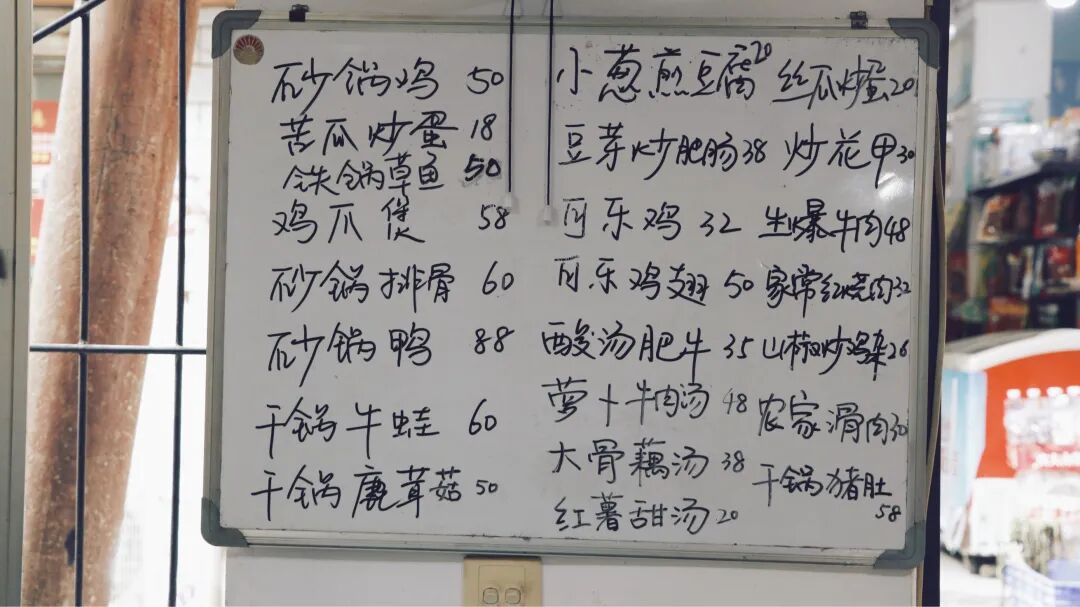 砂锅鸡 50
苦瓜炒蛋 18
铁锅草鱼 50
鸡爪煲 58
砂锅排骨 60
砂锅鸭 88
干锅牛蛙 60
干锅鹿茸菇 50
小葱煎豆腐 20
豆芽炒肥肠 38
可乐鸡 32
可乐鸡翅 50
酸汤肥牛 35
萝卜牛肉汤 48
大骨藕汤 38
红薯甜汤 20
丝瓜炒蛋 20
炒花甲 30
生爆牛肉 48
家常红烧肉 32
山椒炒鸡杂 26
农家滑肉 30
干锅猪肚
58